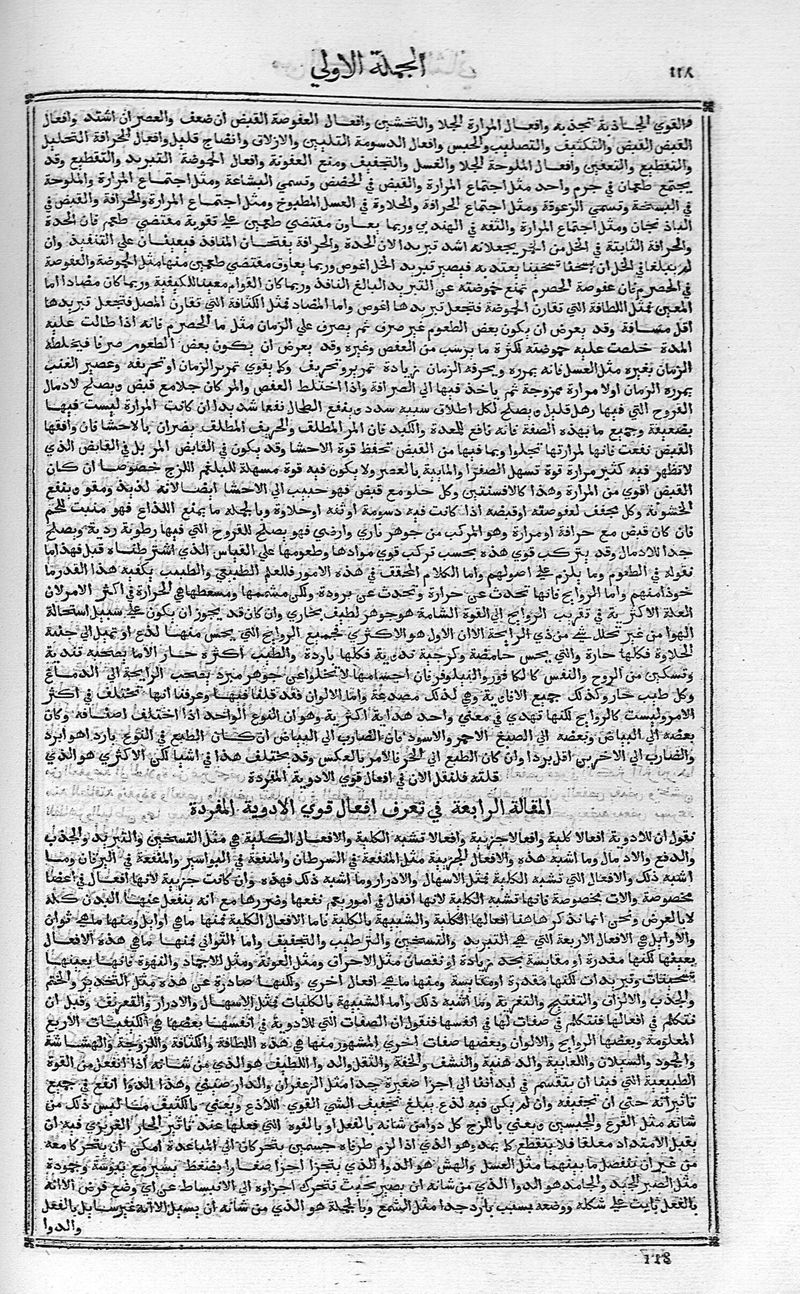 ١١٨
الجملة الاولي
القوي الجاذبة تجذبه وافعال المرارة الجلا والتخشين وافعال العفوصة القبض ان ضعف والعصر ان اشتد وافعال
القبض القبض والتكثيف والتصليب والحبس وافعال الدسومة التليين والازلاق وانضاج قليل وافعال الحرافة التحليل
والتقطيع والتعفين وافعال الملوحة الجلا والغسل والتجفيف ومنع العفونة وافعال الحموضة التبريد والتقطيع وقد
يجتمع طعمان في جرم واحد مثل اجتماع المرارة والقبض في الحضض وتسمي البشاعة ومثل اجتماع المرارة والملوحة
في السبخة وتسمي الزعوقة ومثل اجتماع الحرافة والحلاوة في العسل المطبوخ ومثل اجتماع المرارة والحرافة والقبض في
الباذنجان ومثل اجتماع المرارة والتفه في الهندبي وربما يعاون مقتضي طعمين علي تقوية مقتضي طعم فان الحدة
والحرافة الثابتة في الخل من الخمر يجعلانه اشد تبريدا لان الحدة والحرافة يفتحان المنافذ فيعينان علي التنفيذ وان
لم يبلغا في الخل ان يسخنا تسخينا يعتد به فيصير تبريد الخل اغوص وربما يعاوق مقتضي طعمين منها مثل الحموضة والعفوصة
في الحصرم فان عفوصة الحصرم تمنع حموضته عن التبريد البالغ النافذ وربما كان القوام معينا للكيفية وربما كان مضادا اما
المعين فمثل اللطافة التي تقارن الحموضة فتجعل تبريدها اغوص واما المضاد فمثل الكثافة التي تقارن المصل فتجعل تبريدها
اقل مسافة وقد يعرض ان يكون بعض الطعوم غير صرف ثم يصرف علي الزمان مثل ما الحصرم فانه اذا طالت عليه
المدة خلصت عليه حموضته لكثرة ما يرسب من العفص وغيره وقد يعرض ان يكون بعض الطعوم صرفا فيخلطه
الزمان بغيره مثل العسل فانه يمرره ويحرفه الزمان زيادة تمرير وتحريف وكما يقوي تمرير الزمان او تحريفه وعصير العنب
يمرره الزمان اولا مرارة ممزوجة ثم ياخذ فيها الي الصرافة واذا اختلط العفص والمر كان جلا مع قبض ويصلح لادمال
القروح التي فيها رهل قليل ويصلح لكل اطلاق سببه سدد وينفع الطحال نفعا شديدا ان كانت المرارة ليست فيها
بضعيفة وجميع ما بهذه الصفة فانه نافع للمعدة والكبد فان المر المطلق والحريف المطلق يضران بالاحشا فان وافقها
القبض نفعت فانها لمرارتها تجلوا وبما فيها من القبض تحفظ قوة الاحشا وقد يكون في القابض المر بل في القابض الذي
لا تظهر فيه كثير مرارة قوة تسهل الصفرا والمايية بالعصر ولا يكون فيه قوة مسهلة للبلغم اللزج خصوصا ان كان
القبض اقوي من المرارة وهذا كالافسنتين وكل حلو مع قبض فهو حبيب الي الاحشا ايضا لانه لذيذ ومقو وينفع
الخشونة وكل مجفف لعفوصته او قبضه اذا كانت فيه دسومة او تفه او حلاوة وبالجملة ما يمنع اللذاع فهو منبت للحم
فان كان قبض مع حرافة او مرارة وهو المركب من جوهر ناري وارضي فهو يصلح للقروح التي فيها رطوبة ردية ويصلح
جدا للادمال وقد يتركب قوي هذه بحسب تركب قوي موادها وطعومها علي القياس الذي اشترطناه قبل فهذا ما
نقوله في الطعوم وما يلزم علي اصولهم واما الكلام المحقق في هذه الامور فللعلم الطبيعي والطبيب يكفيه هذا القدر ما
خوذا منهم واما الروايح فانها تحدث عن حرارة وتحدث عن برودة ولكن مشممها ومسعطها هي الحرارة في اكثر الامر لان
العلة الاكثرية في تقريب الروايح الي القوة الشامة هو جوهر لطيف بخاري وان كان قد يجوز ان يكون علي سبيل استحالة
الهوا من غير تحلل شي من ذي الرايحة الا ان الاول هو الاكثري فجميع الروايح التي يحس منها لذع او تميل الي جنبة
الحلاوة فكلها حارة والتي يحس حامضة وكرجية ندوية فكلها باردة والطيب اكثره حار الا ما يصحبه تندية
وتسكين من الروح والنفس كالكافور والنيلوفر فان اجسامها لا تخلوا عن جوهر مبرد يصحب الرايحة الي الدماغ
وكل طيب حار وكذلك جميع الافاوية وهي لذلك مصدعة واما الالوان فقد قلنا فيها وعرفنا انها تختلف في اكثر
الامر وليست كالروايح لكنها تهدي في معني واحد هداية اكثرية وهو ان النوع الواحد اذا اختلف اصنافه وكان
بعضه الي البياض وبعضه الي الصبغ الاحمر والاسود فان الضارب الي البياض ان كان الطبع في النوع باردا هو ابرد
والضارب الي الاخرين اقل بردا وان كان الطبع الي الحر فالامر بالعكس وقد يختلف هذا في اشيا لكن الاكثري هو الذي
قلته فلنقل الان في افعال قوي الادوية المفردة
المقالة الرابعة في تعرف افعال قوي الادوية المفردة
نقول ان للادوية افعالا كلية وافعالا جزيية وافعالا تشبه الكلية والافعال الكلية هي مثل التسخين والتبريد والجذب
والدفع والادمال وما اشبه هذه والافعال الجزيية مثل المنفعة في السرطان والمنفعة في البواسير والمنفعة في اليرقان وما
اشبه ذلك والافعال التي تشبه الكلية فمثل الاسهال والادرار وما اشبه ذلك فهذه وان كانت جزيية لانها افعال في اعضا
مخصوصة والات مخصوصة فانها تشبه الكلية لانها افعال في امور يعم نفعها وضررها مع انه ينفعل عنها البدن كله
لا بالعرض ونحن انما نذكر هاهنا افعالها الكلية والشبيهة بالكلية فاما الافعال الكلية فمنها ما هي اوايل ومنها ما هي ثوان
والاوايل هي الافعال الاربعة التي هي التبريد والتسخين والترطيب والتجفيف واما الثواني فمنها ما هي هذه الافعال
بعينها لكنها مقدرة او مقايسة بحد زيادة او نقصان مثل الاحراق ومثل العفونة ومثل الاجماد والنهوة فانها بعينها
تسخينات وتبريدات لكنها مقدرة او مقايسة ومنها ما هي افعال اخري ولكنها صادرة عن هذه مثل التخدير والختم
والجذب والالزاق والتفتيح والتغرية وما اشبه ذلك واما الشبيهة بالكليات فمثل الاسهال والادرار والتعريق وقبل ان
نتكلم في افعالها فنتكلم في صفات لها في انفسها فنقول ان الصفات التي للادوية في انفسها بعضها هي الكيفيات الاربع
المعلومة وبعضها الروايح والالوان وبعضها صفات اخري المشهور منها هي هذه اللطافة والكثافة واللزوجة والهشاشة
والجمود والسيلان واللعابية والدهنية والنشف والخفة والثقل والدوا اللطيف هو الذي من شانه اذا انفعل من القوة
الطبيعية التي فينا ان ينقسم في ابداننا الي اجزا صغيرة جدا مثل الزعفران والدارصيني وهذا الدوا انفع في جميع
تاثيراته حتي ان تجفيفه وان لم يكن فيه لذع يبلغ تجفيف الشي القوي اللاذع ونعني بالكثيف ما ليس ذلك من
شانه مثل القرع والجبسين ونعني باللزج كل دوا من شانه بالفعل او بالقوة التي فعلها عند تاثير الحار الغريزي فيه ان
يقبل الامتداد معلقا فلا ينقطع كما يمد وهو الذي اذا لزم طرفاه جسمين يتحركان الي المباعدة امكن ان يتحركا معه
من غير ان ينفصل ما بينهما مثل العسل والهش هو الدوا الذي يتجزا اجزا صغارا بضغط يسير مع يبوسة وجمودة
مثل الصبر الجيد والجامد هو الدوا الذي من شانه ان يصير بحيث تتحرك اجزاوه الي الانبساط عن اي وضع فرض الا انه
بالفعل ثابت علي شكله ووضعه بسبب بارد جدا مثل الشمع وبالجملة هو الذي من شانه ان يسيل الا انه غير سايل بالفعل
والدوا
118